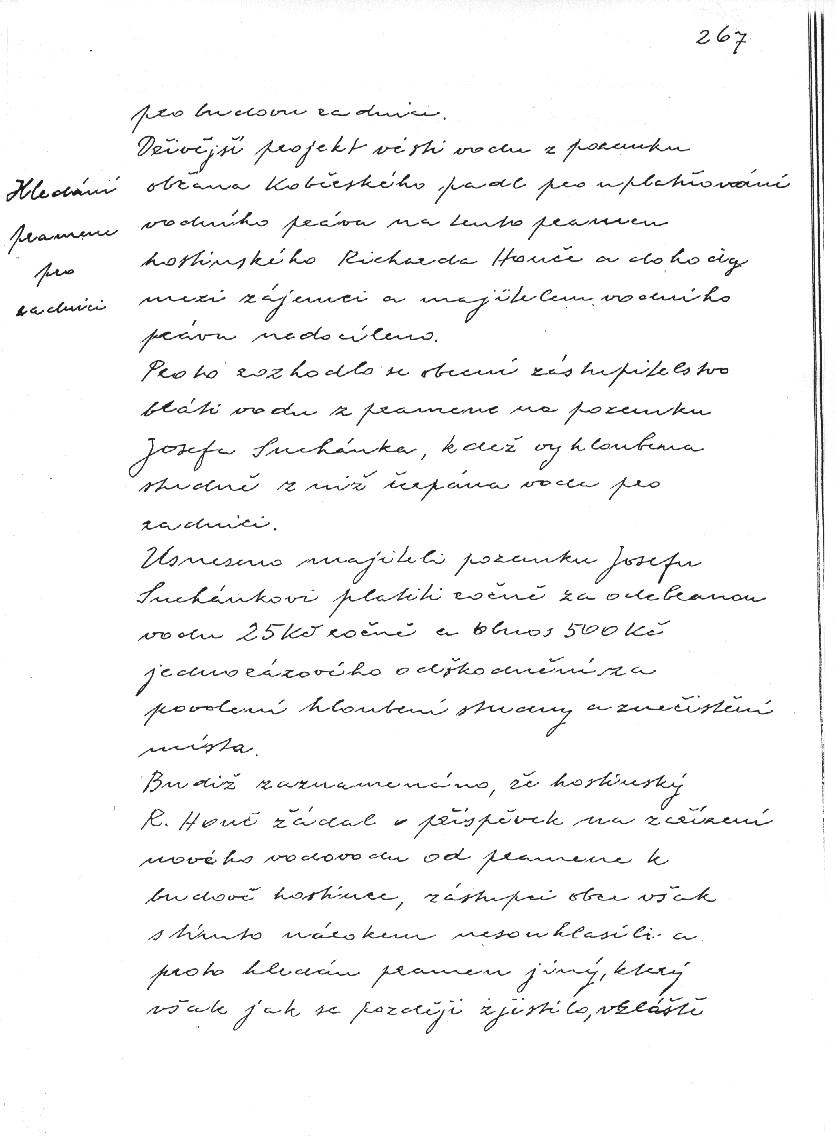 267
pro budovu radnici.
Dřívější projekt vésti vodu z pozemku
občana Kobčeského padl pro uplatňování
vodního práva na tento pramen
hostinského Richarda Honče a dohody
mezi zájemci a majitelem vodního
práva nedocíleno.
Proto rozhodlo se obecní zástupitelstvo
bráti vodu z pramene na pozemku
Josefa Suchánka, kdež vyhloubena
studně z níž čerpána voda pro
radnici.
Usneseno majiteli pozemku Josefu
Suchánkovi platiti ročně za odebranou
vodu 25 Kč ročně a obnos 500 Kč
jednorázového odškodnění za
povolení hloubení studny a znečistění
místa.
Budiž zaznamenáno, že hostinský
R. Honč žádal o příspěvek na zařízení
nového vodovodu od pramene k
budově hostince, zástupci obce však
s tímto nárokem nesouhlasili a
proto hledán pramen jiný, který
však jak se později zjistilo, vzláště
Hledání
pramene
pro
radnici